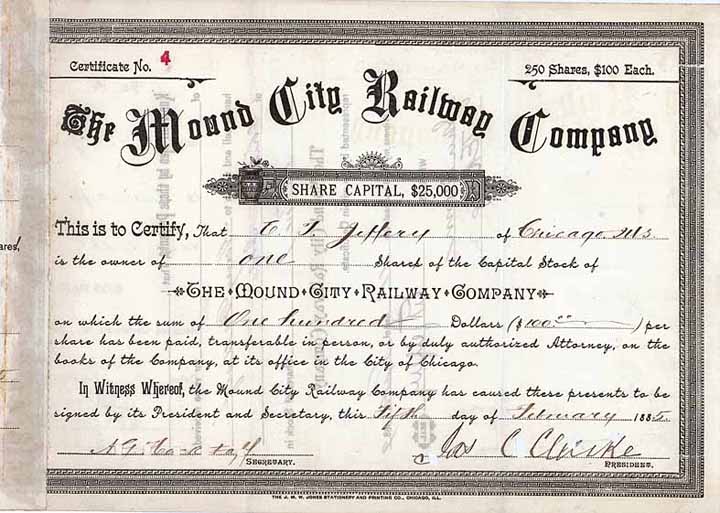 Certificate No. 4
250 Shares, $100 Each.
The Mound City Railway Company
SHARE CAPITAL, $25,000
This is to Certify, That E T Jeffery of Chicago Ills.
is the owner of one Shares of the Capital Stock of
THE MOUND CITY RAILWAY COMPANY
on which the sum of One hundred Dollars ($100.00) per
share has been paid, transferable in person, or by duly authorized Attorney, on the
books of the Company, at its office in the City of Chicago.
In Witness Whereof, the Mound City Railway Company has caused these presents to be
signed by its President and Secretary, this Fifth day of February 1885
Jas C Clarke
SECRETARY.
PRESIDENT.
THE J. M. W. JONES STATIONERY AND PRINTING CO., CHICAGO, ILL.
ares,